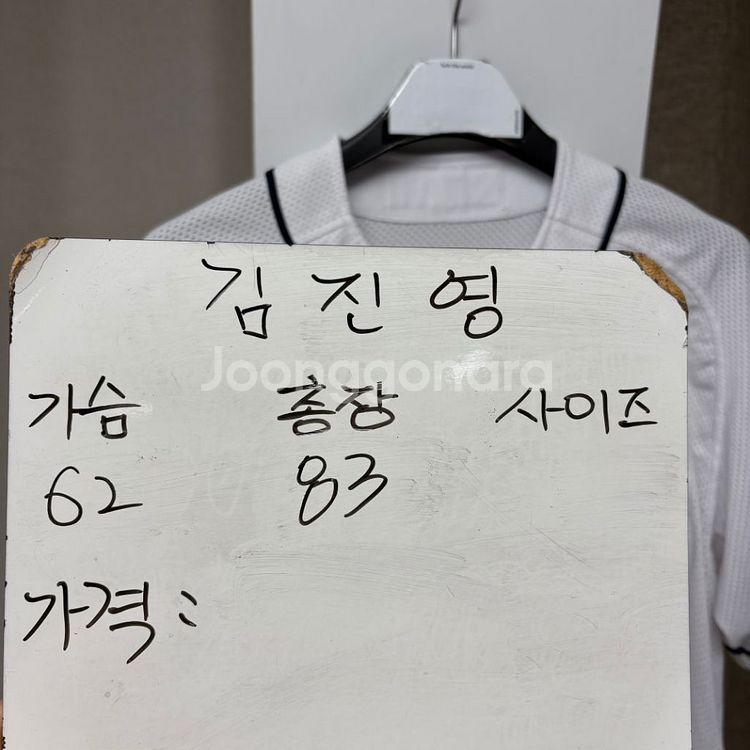 김진영
Joonggonara
가슴 총장 사이즈
62 83
가격: